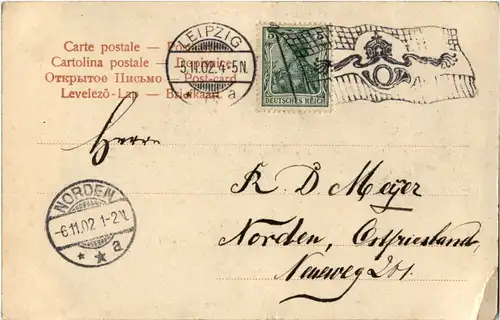 LEIPZIG
5.11.02.4-5N.
a
5
DEUTSCHES REICH
Carte postale —
Cartolina postale —
Открытое Письмо — Post-card
Levelező-Lap — Briefkaart
Herrn
K. D. Meyer
Norden, Ostfriesland,
Neueweg
NORDEN
-6.11.02 1-2N.
* * a